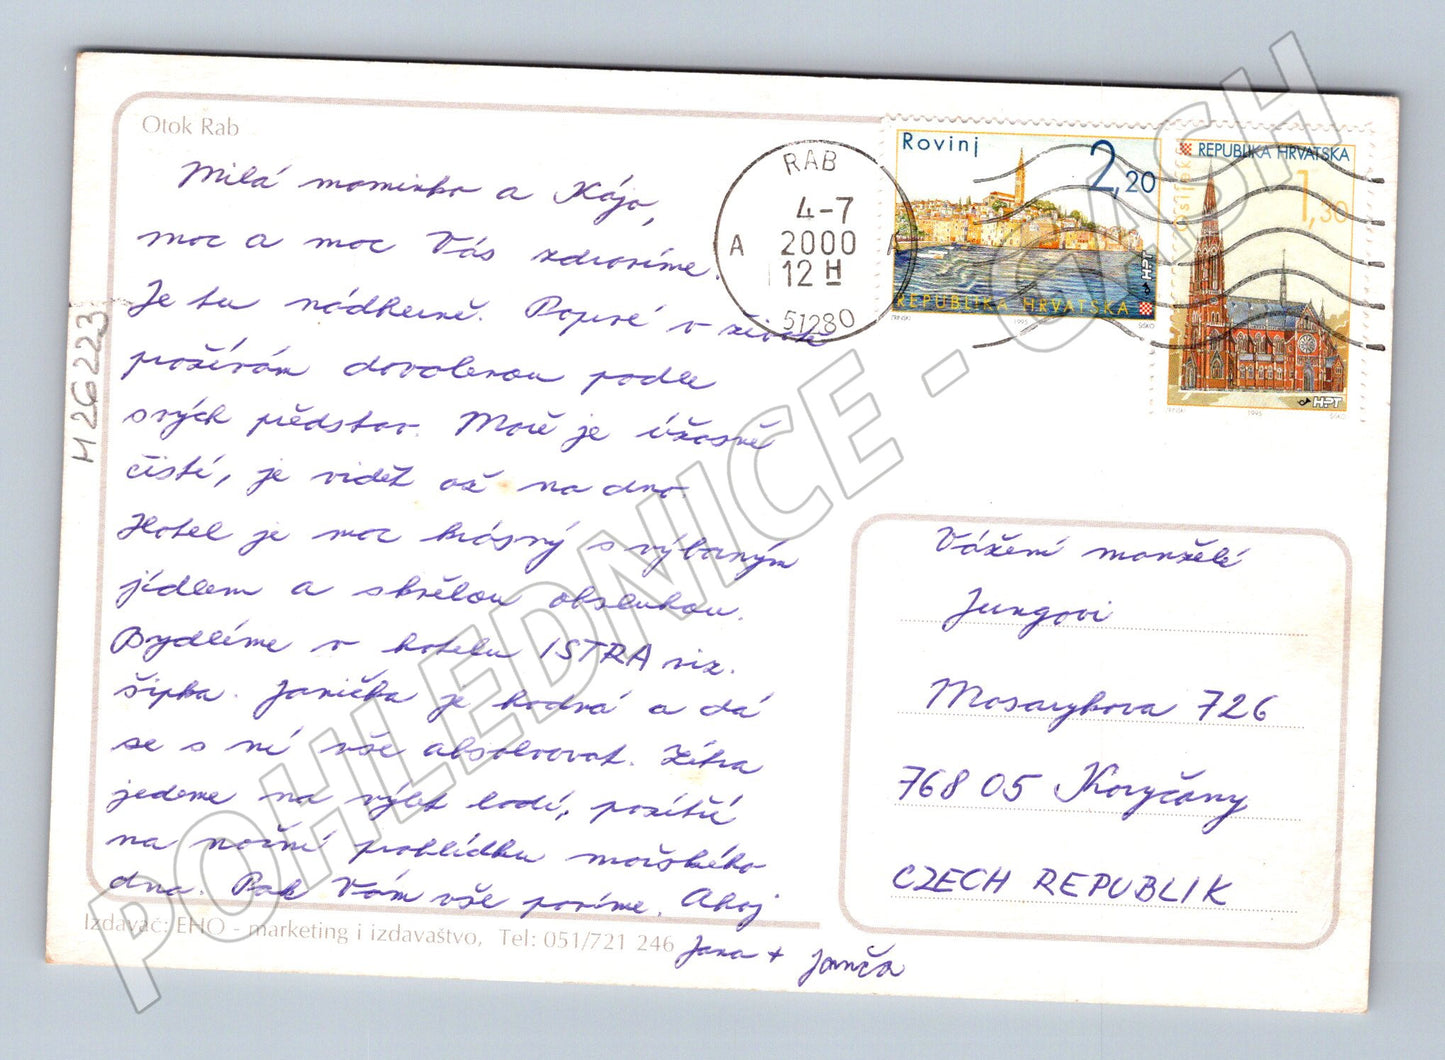 Otok Rab
Milá maminko a Kájo,
moc a moc Vás zdravíme.
Je tu nádherně. Poprvé v životě
prožívám dovolenou podle
svých představ. Moře je úžasně
čisté, je vidět až na dno.
Hotel je moc krásný s výborným
jídlem a skvělou obsluhou.
Bydlíme v hotelu ISTRA viz.
šipka. Janička je hodná a dá
se s ní vše absolvovat. Zítra
jedeme na výlet lodí, pozítří
na noční prohlídku mořského
dna. Pak Vám vše povíme. Ahoj
Jana + Janča
Izdavač: EHO - marketing i izdavaštvo, Tel: 051/721 246
M26223
RAB
4-7
A 2000 A
12 H
51280
Rovinj
2,20
REPUBLIKA HRVATSKA
TRINSKI 1995 SIŠKO
REPUBLIKA HRVATSKA
Osijek
1,30
HPT
1995
Vážení manželé
Jungovi
Masarykova 726
768 05 Koryčany
CZECH REPUBLIK
POHLEDNICE - CASH